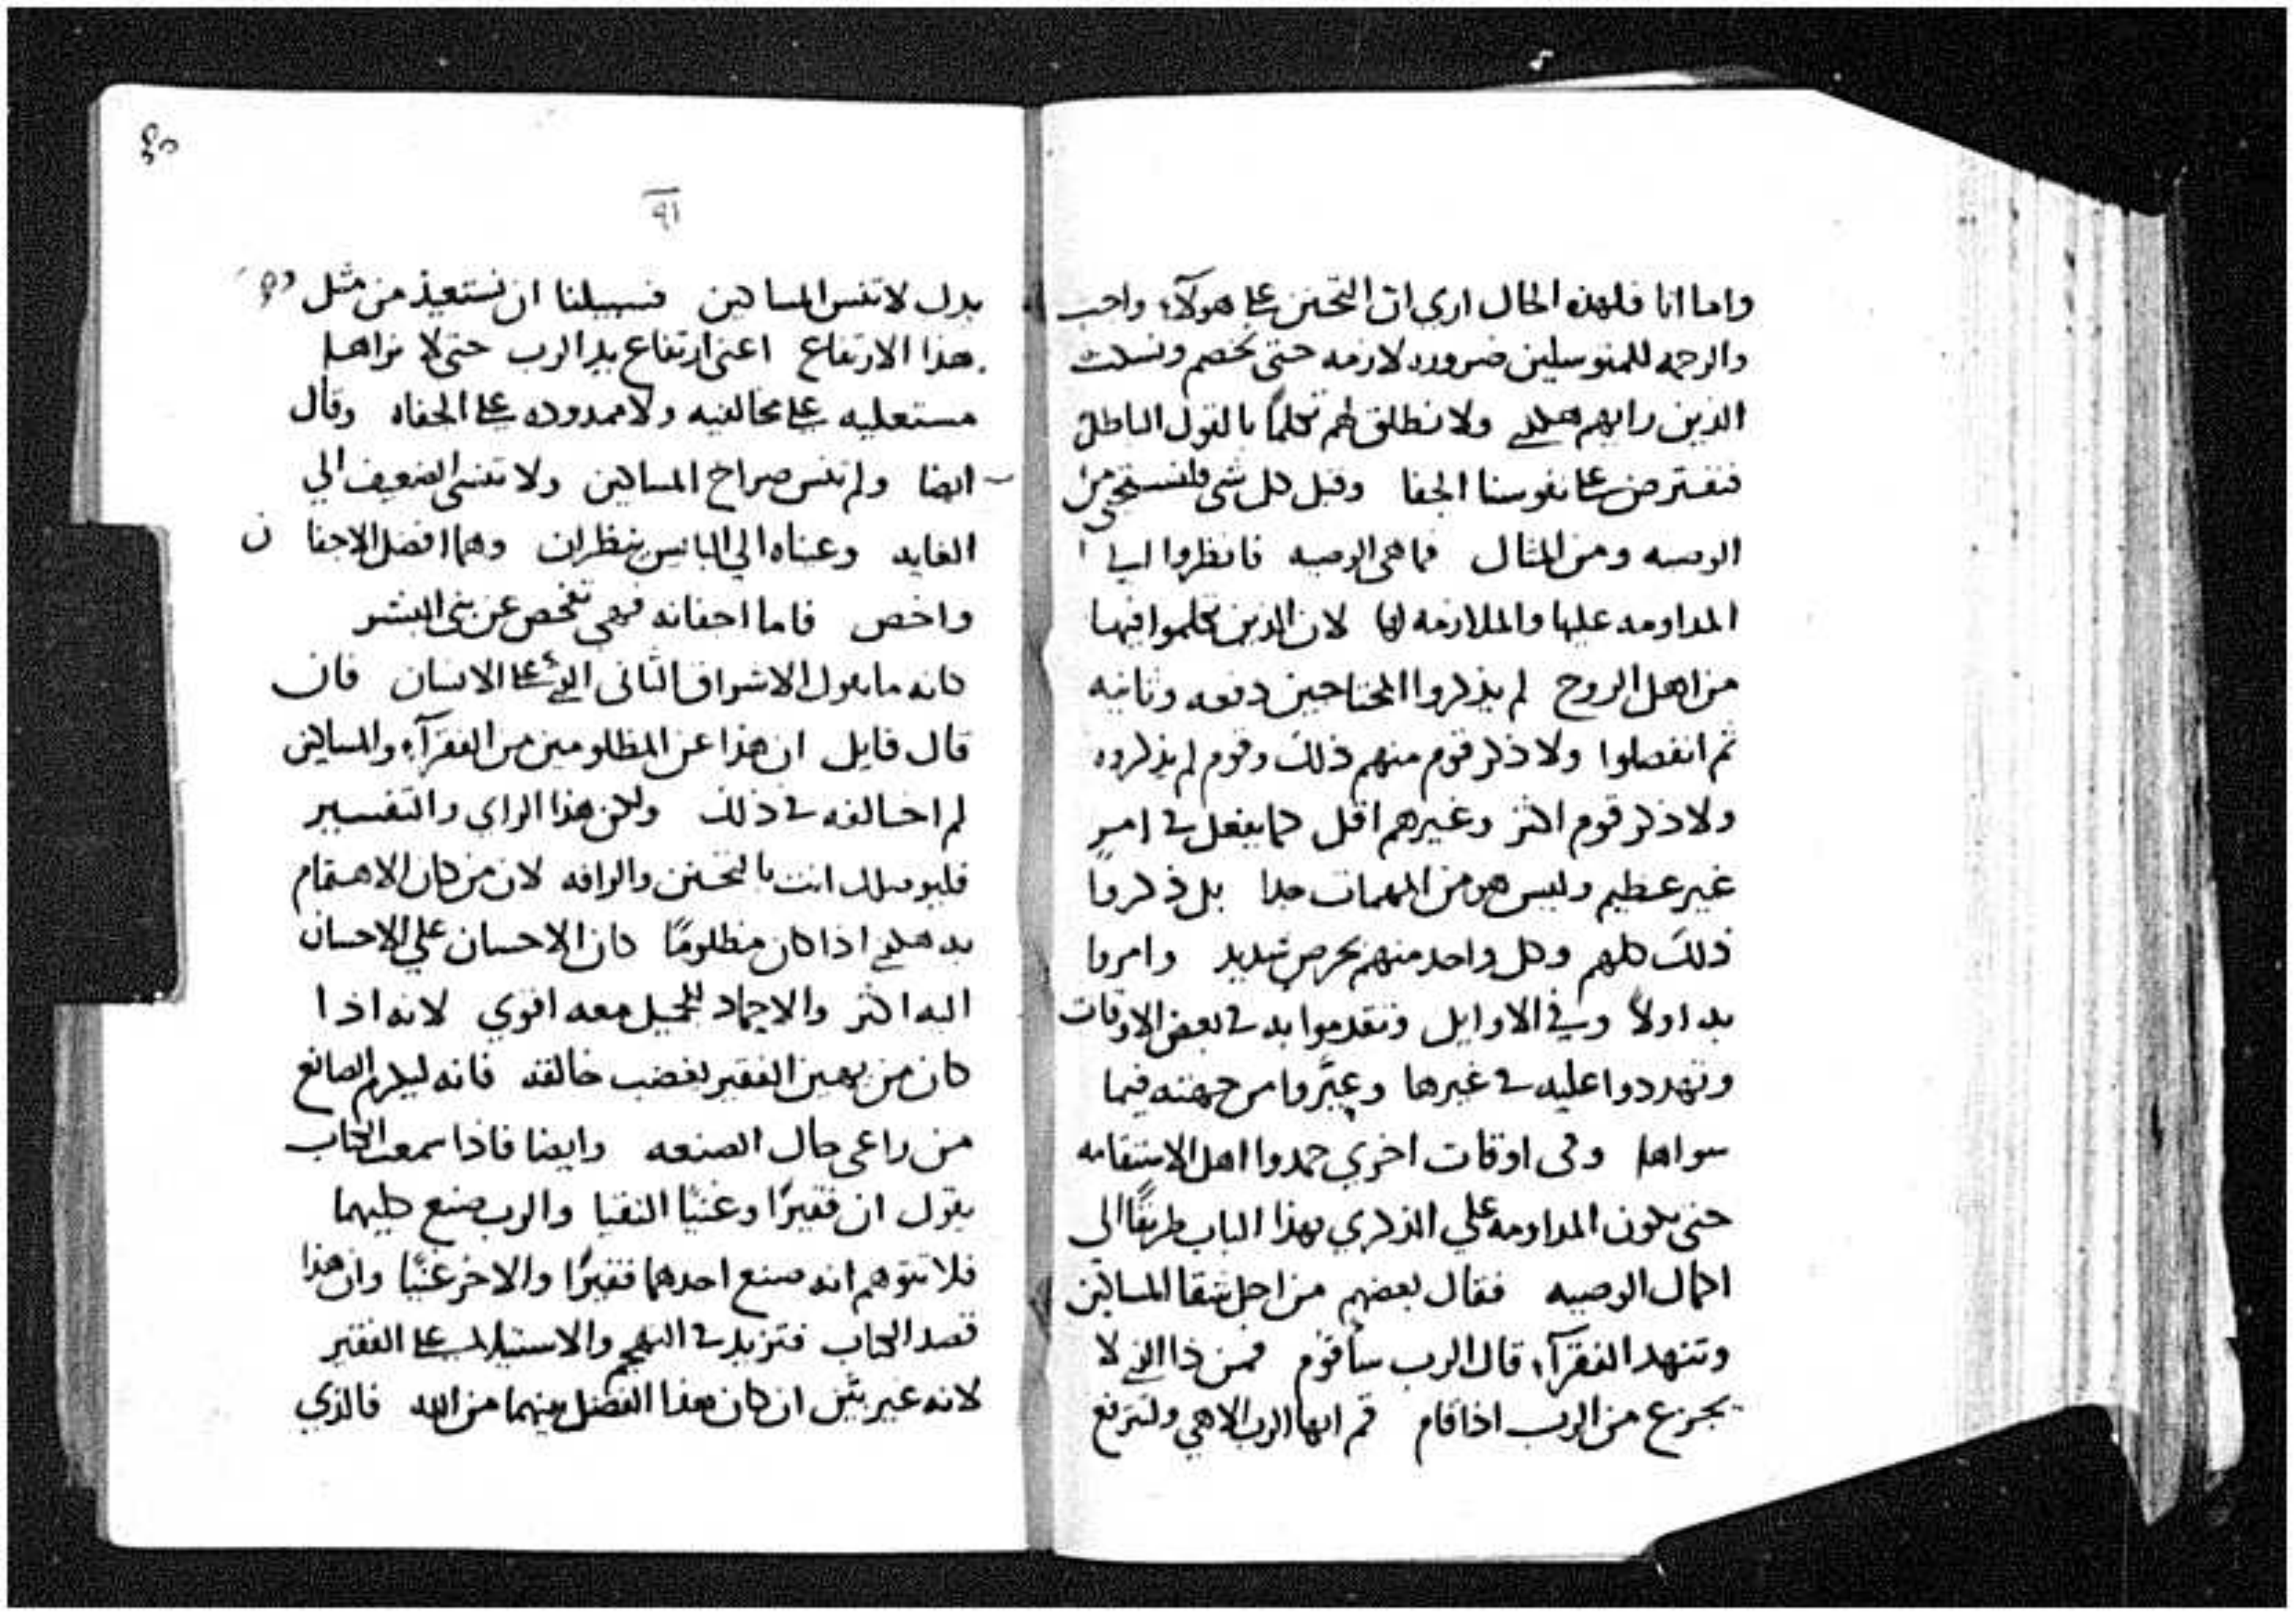 واما انا فلهذه الحال اري ان التحنن علي هولآء واجب
والرحمه للمتوسلين ضروره لازمه حتي نخصم ونسكت
الذين رايهم هكذي ولا نطلق لهم تكلمًا بالقول الباطل
فنفترض علي نفوسنا الجفا وقبل كل شي فلنستحي من
الوصيه ومن المثال فما هي الوصيه فانظروا الي
المداومه عليها والملازمه لها لان الذين تكلموا فيها
من اهل الروح لم يذكروا المحتاجين دفعه وثانيه
ثم انفصلوا ولا ذكر قوم منهم ذلك وقوم لم يذكروه
ولا ذكر قوم اكثر وغيرهم اقل كما يفعل في امر
غير عظيم وليس هو من المهمات جدا بل ذكروا
ذلك كلهم وكل واحد منهم بحرص شديد وامروا
به اولاً وفي الاوايل وتقدموا به في بعض الاوقات
وتهددوا عليه في غيرها وعيَّروا من جهته فيما
سواها وفي اوقات اخري حمدوا اهل الاستقامه
حتي يكون المداومه علي الذكري بهذا الباب طريقًا الي
اكمال الوصيه فقال بعضهم من اجل شقا المساكين
وتنهد الفقرآء قال الرب ساقوم فمن ذا الذي لا
يجزع من الرب اذا قام قم ايها الرب الاهي ولترتفع
٩١
يدك لا تنس المساكين فسبيلنا ان نستعيذ من مثل
هذا الارتفاع اعني ارتفاع يد الرب حتي لا نراها
مستعليه علي مخالفيه ولا ممدوده علي الجفاه وقال
ايضا ولم تنس صراخ المساكين ولا تنسي الضعيف الي
الغايه وعيناه الي البايس ينظران وهما افضل الاجفان
واخص فاما اجفانه فهي تفحص عن بني البشر
كانه ما يقول الاشراف الثاني الذي علي الانسان فان
قال قايل ان هذا عن المظلومين من الفقرآء والمساكين
لم اخالفه في ذلك ولكن هذا الراي والتفسير
فليوصلك انت بالتحنن والرافه لان من كان الاهتمام
به هكذي اذا كان مظلومًا كان الاحسان علي الاحسان
اليه اكثر والاحماد للجميل معه اقوي لانه اذا
كان من يهين الفقير يغضب خالقه فانه ليكرم الصانع
من راعي حال الصنعه وايضا فاذا سمعت الكتاب
يقول ان فقيرًا وغنيًّا التقيا والرب صنع كليهما
فلا تتوهم انه صنع احدهما فقيرًا والاخر غنيًّا وان هذا
قصد الكتاب فتزيد في التهجم والاستيلا علي الفقير
لانه غير بيّن ان كان هذا الفصل بينهما من الله فالذي